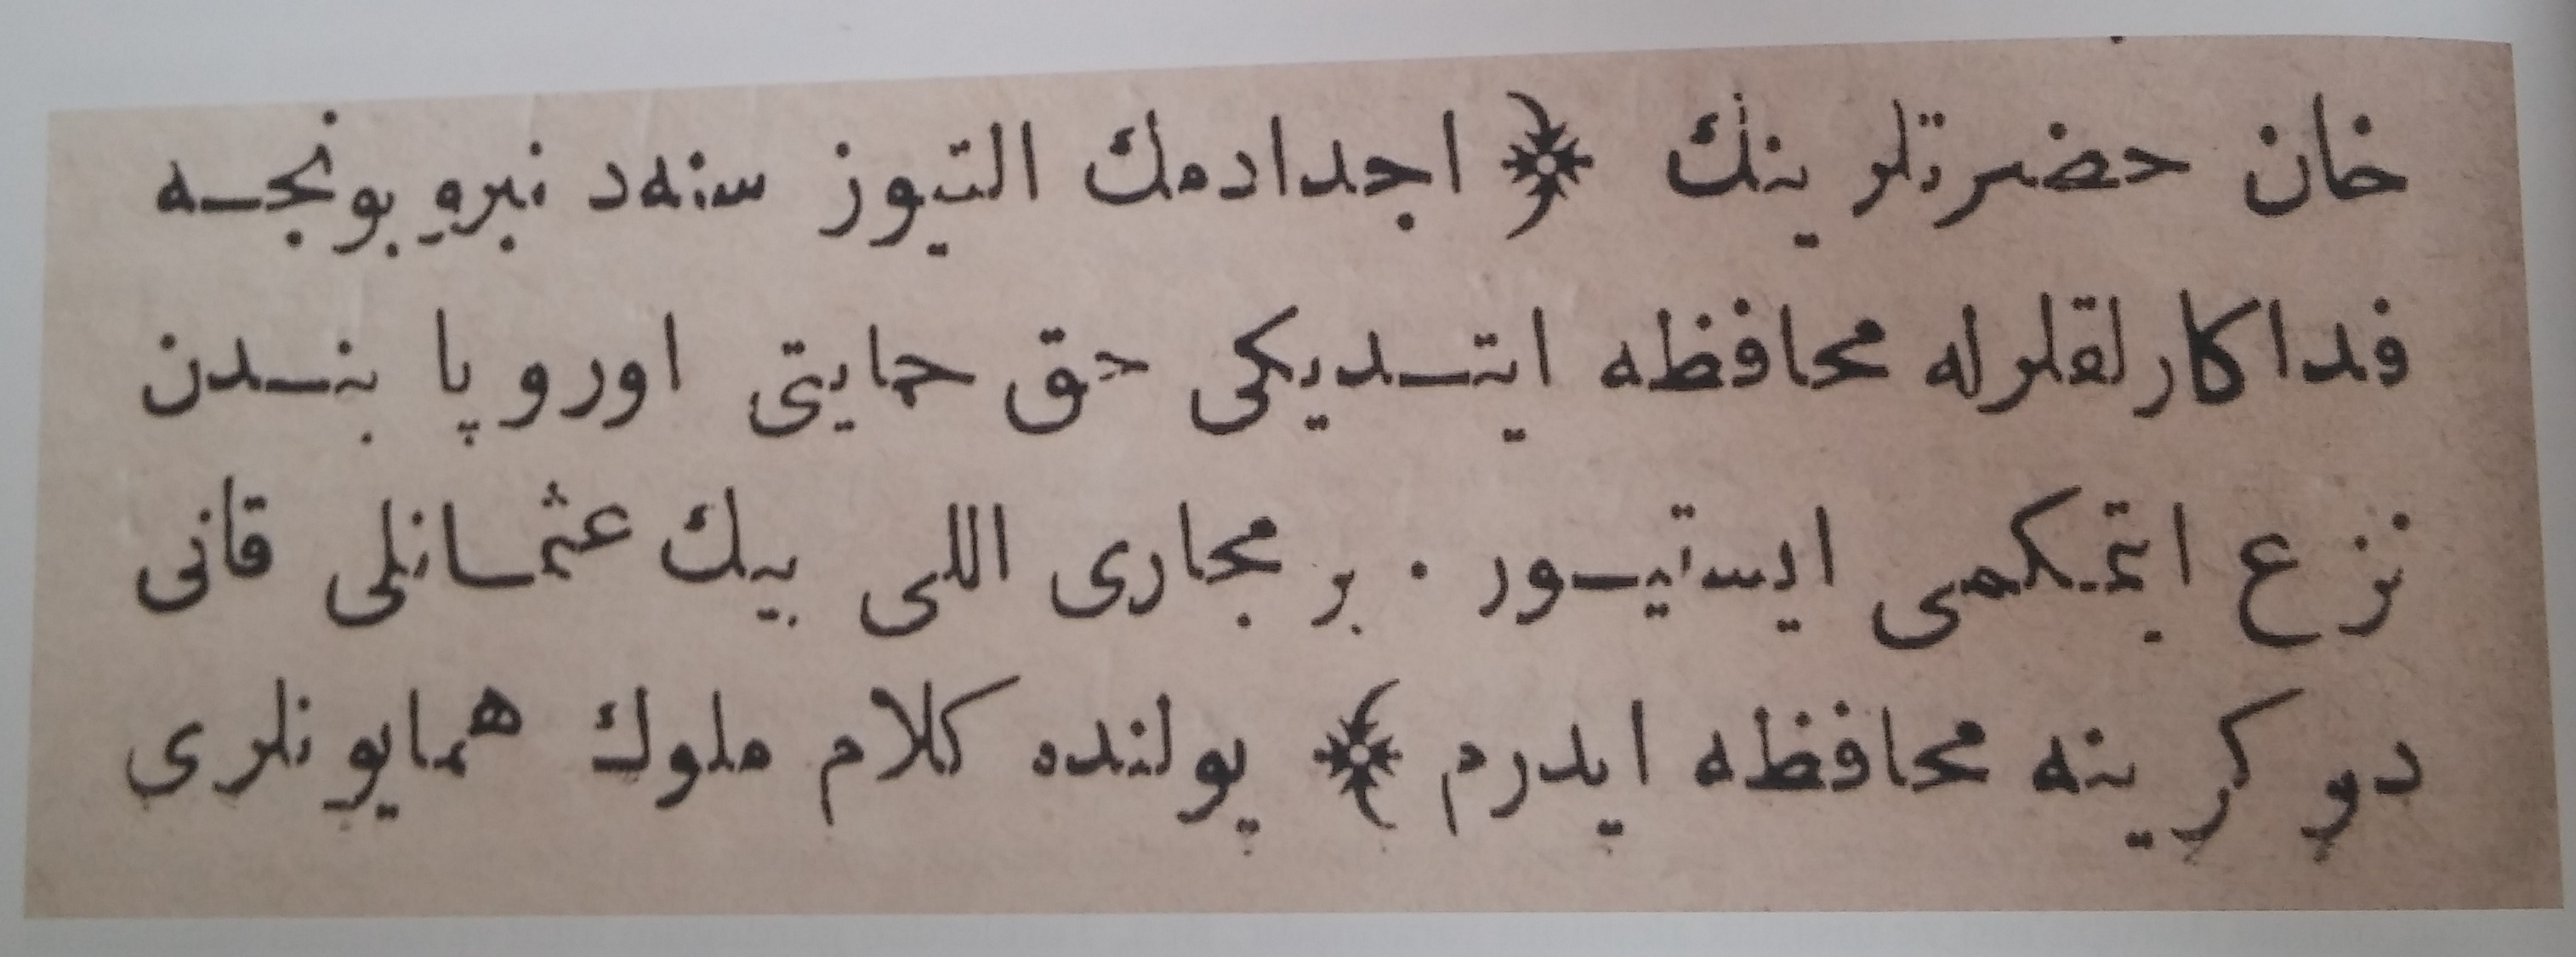 خان حضرتلرینڭ ﴿ اجدادمڭ التیوز سنه‌د نبرو بونجه
فداکارلقلرله محافظه ایتدیکی حق حمایتی اوروپا بندن
نزع ایتمکمی ایستیور . بر مجاری اللی بیڭ عثمانلی قانی
دوکر ینه محافظه ایدرم ﴾ یولنده کلام ملوڭ همایونلری